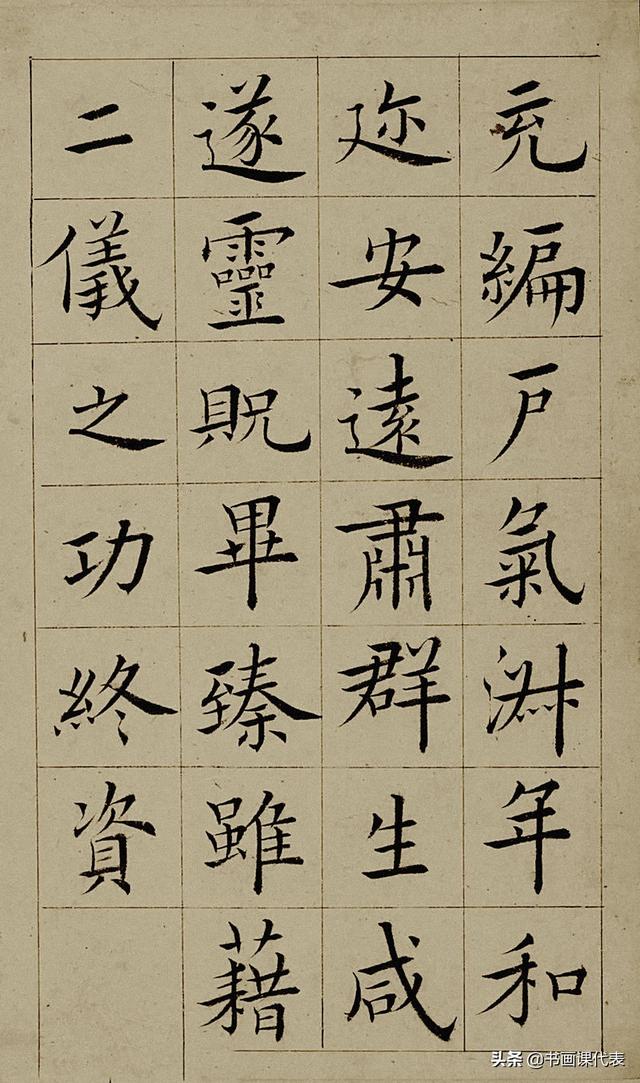 充編戶氣淋年和
迩安遠肅羣生咸
遂靈貺畢臻雖藉
二儀之功終資
头条 @书画课代表